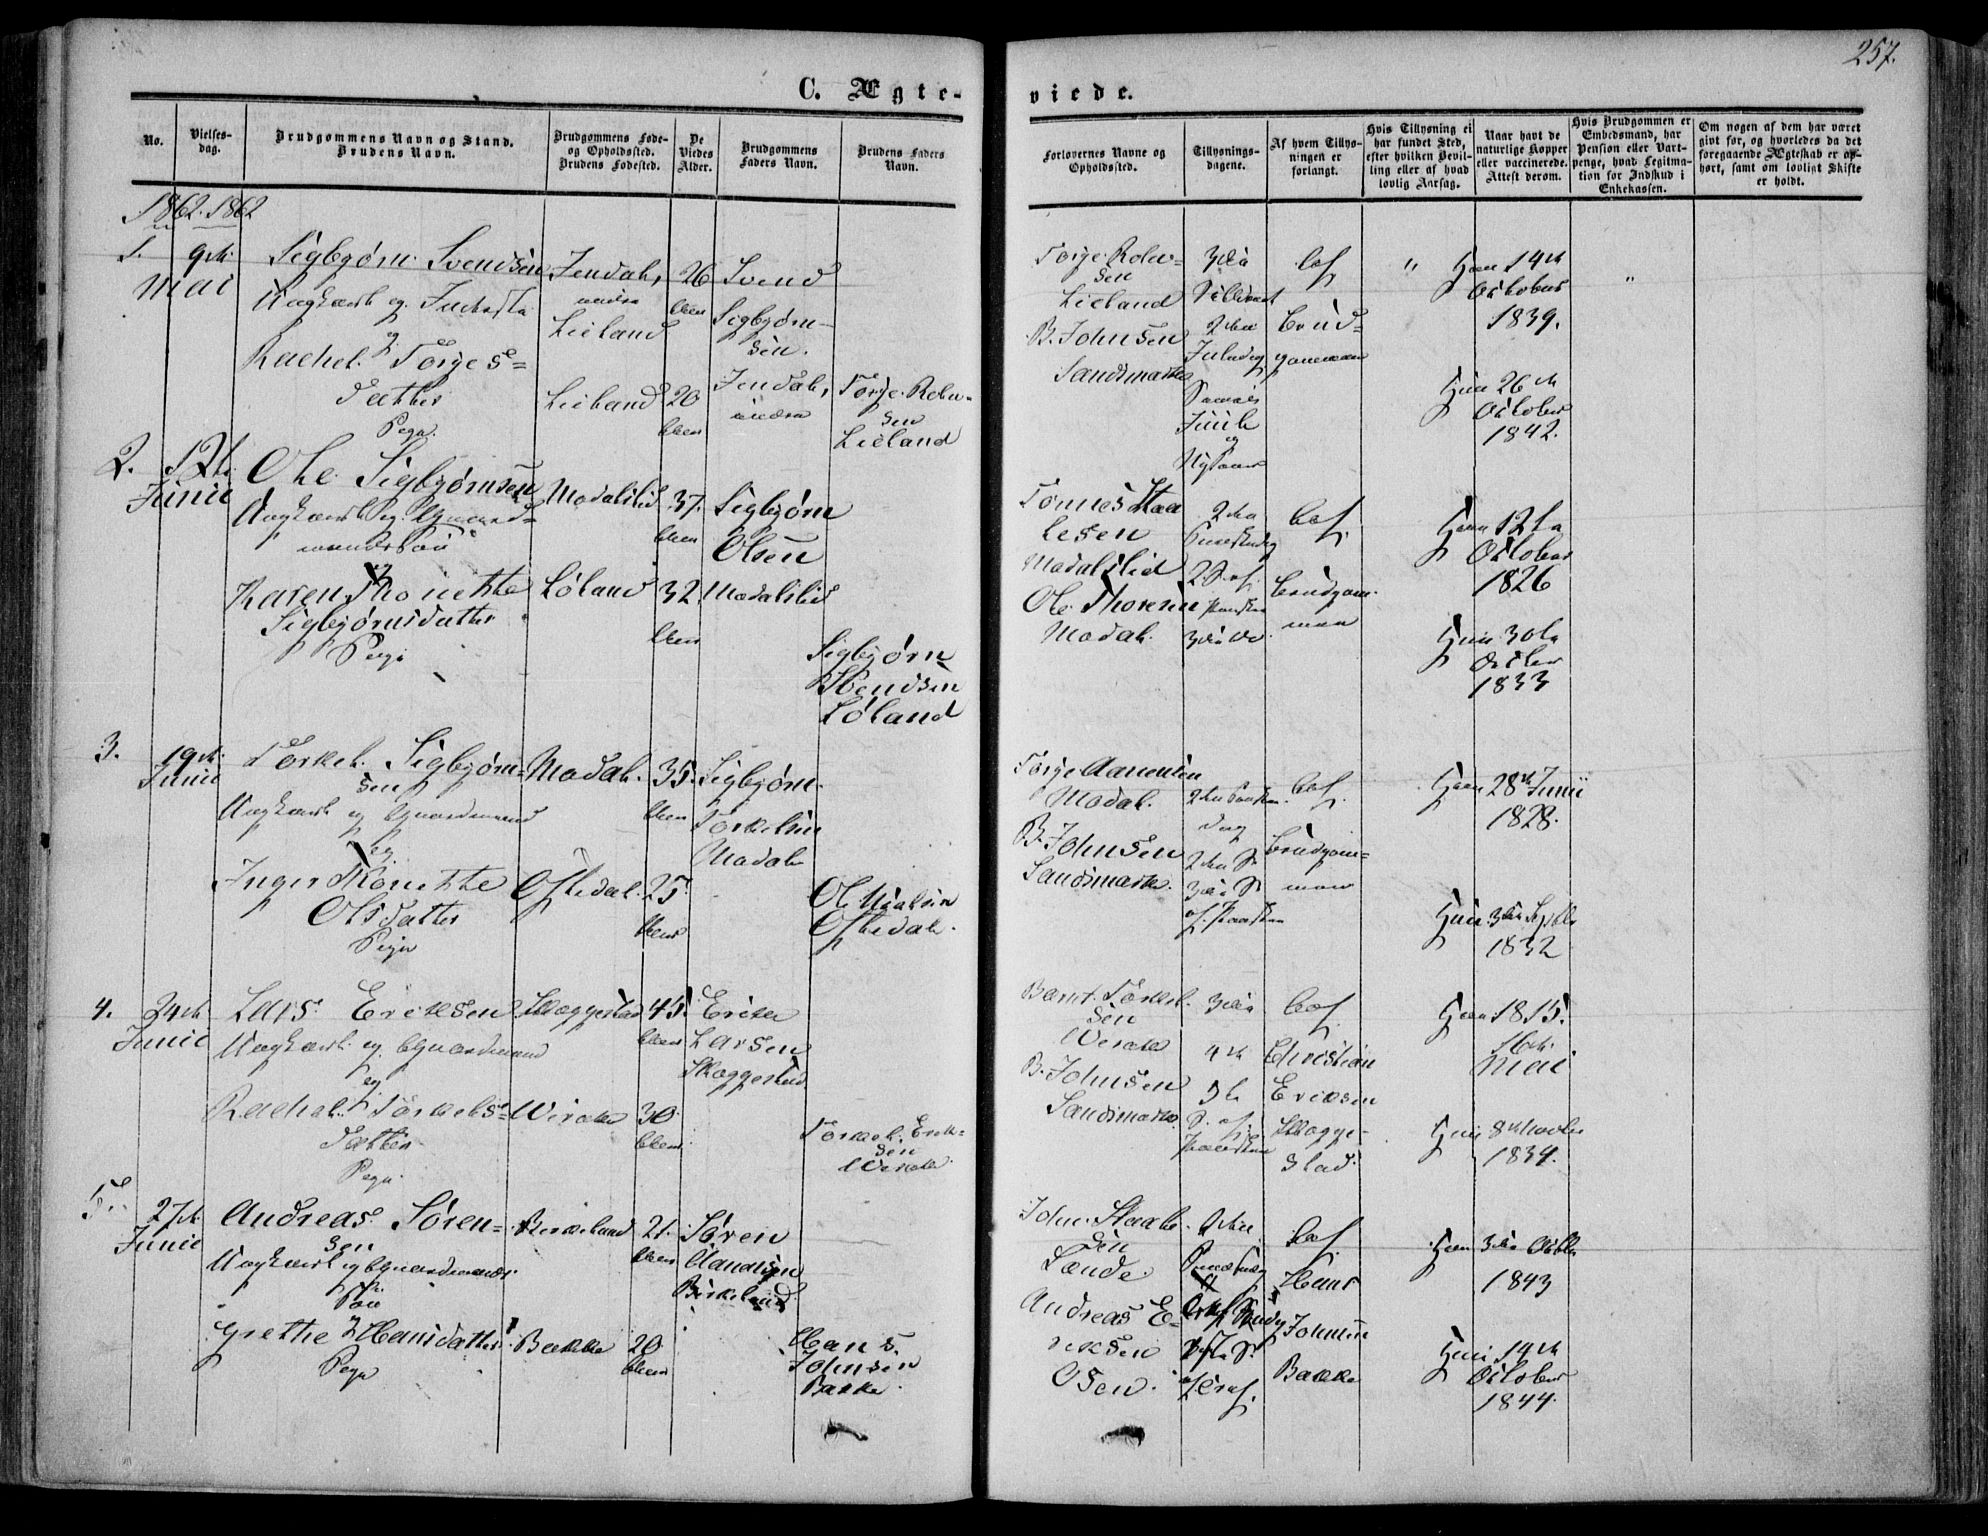 257.
C. Ægte-
viede.
No.
Vielses-
dag.
Brudgommens Navn og Stand.
Brudens Navn.
Brudgommens Føde-
og Opholdssted.
Brudens Fødested.
De
Viedes
Alder.
Brudgommens
Faders Navn.
Brudens Faders
Navn.
Forlovernes Navne og
Opholdssted.
Tillysnings-
dagene.
Af hvem Tillys-
ningen er
forlangt.
Hvis Tillysning ei
har fundet Sted,
efter hvilken Bevil-
ling eller af hvad
lovlig Aarsag.
Naar havt de
naturlige Kopper
eller vaccinerede.
Attest derom.
Hvis Brudgommen er
Embedsmand, har
Pension eller Vart-
penge, hvad Legitima-
tion for Indskud i
Enkekassen.
Om nogen af dem har været
givt før, og hvorledes da det
foregaaende Ægteskab er op-
hørt, samt om lovligt Skifte
er holdt.
1862. 1862
1. 9de
Mai
Sigbjørn Svendsen
Ungkarl og
og
Rachel Torjes=
datter
Pega.
Jendal,
Lieland
Lieland
26
20
Svend
Sigbjørn-
sen.
Jendal,
Torje Rolv=
sen
Lieland
Torje Rolv=
sen
Lieland
B. Johnsen
Sandsmark
3die
2den
Juledag
og
Nytaar
af
Brud=
gommen
"
Ham 14de
October
1839.
Hun 26de
October
1842.
"
2. 12te
Junii
Ole Sigbjørnsen
Ungkarl og Gaard=
mandssøn
Karen Thonette
Sigbjørnsdatter
Pega
Modalslid
Løland
37.
32.
Sigbjørn
Olsen
Modalslid
Sigbjørn
Svendsen
Løland
Tønnes Staa
lesen
Modalslid
Ole Thorsen
Modal.
2den
2 S. af
3die
af
Brudgom-
men
Ham 12te
October
1826
Hun 30te
Octber
1833
3. 19de
Junii
Torkel Sigbjørn=
sen
Ungkarl og Gaardmand
og
Inger Thonette
Olsdatter
Pega
Modal.
Oftedal.
35.
25.
Sigbjørn
Torkelsen
Modal
Ole Nielsen
Oftedal.
Torje Aanensen
Modal.
B. Johnsen
Sandsmark.
2den Paaske
dag
2den S.
3die S.
af.
Brudgom=
men
Ham 28de Junii
1828.
Hun 3die Septbr
1832
4. 24de
Junii
Lars Eriksen
Ungkarl og Gaardmand
og
Rachel Torkels=
datter
Pega.
Skoggestad
Wirak
45.
30.
Erik
Larsen
Skoggestad
Torkel Erik=
sen
Wirak.
Bernt Torkel
sen
Wirak
B. Johnsen
Sandsmark.
3die
4de
5te
S. af.
af
Christian
Eriksen
Skogge-
stad.
Ham 1815.
16de
Mai
Hun 8de Novbr
1834.
5. 27de
Junii
Andreas Søren=
sen
Ungkarl og Gaardmands
søn
Grethe Hansdatter
Pega
Birkeland
Bakke
21.
20
Søren
Birkeland
Hans
Johnsen
Bakke.
John Staale
sen
Lande.
Andreas E=
riksen
Osen.
2den
af
Hans
Johnsen
Bakke
Ham 3die Octbr
1843
Hun 14de
October
1844.